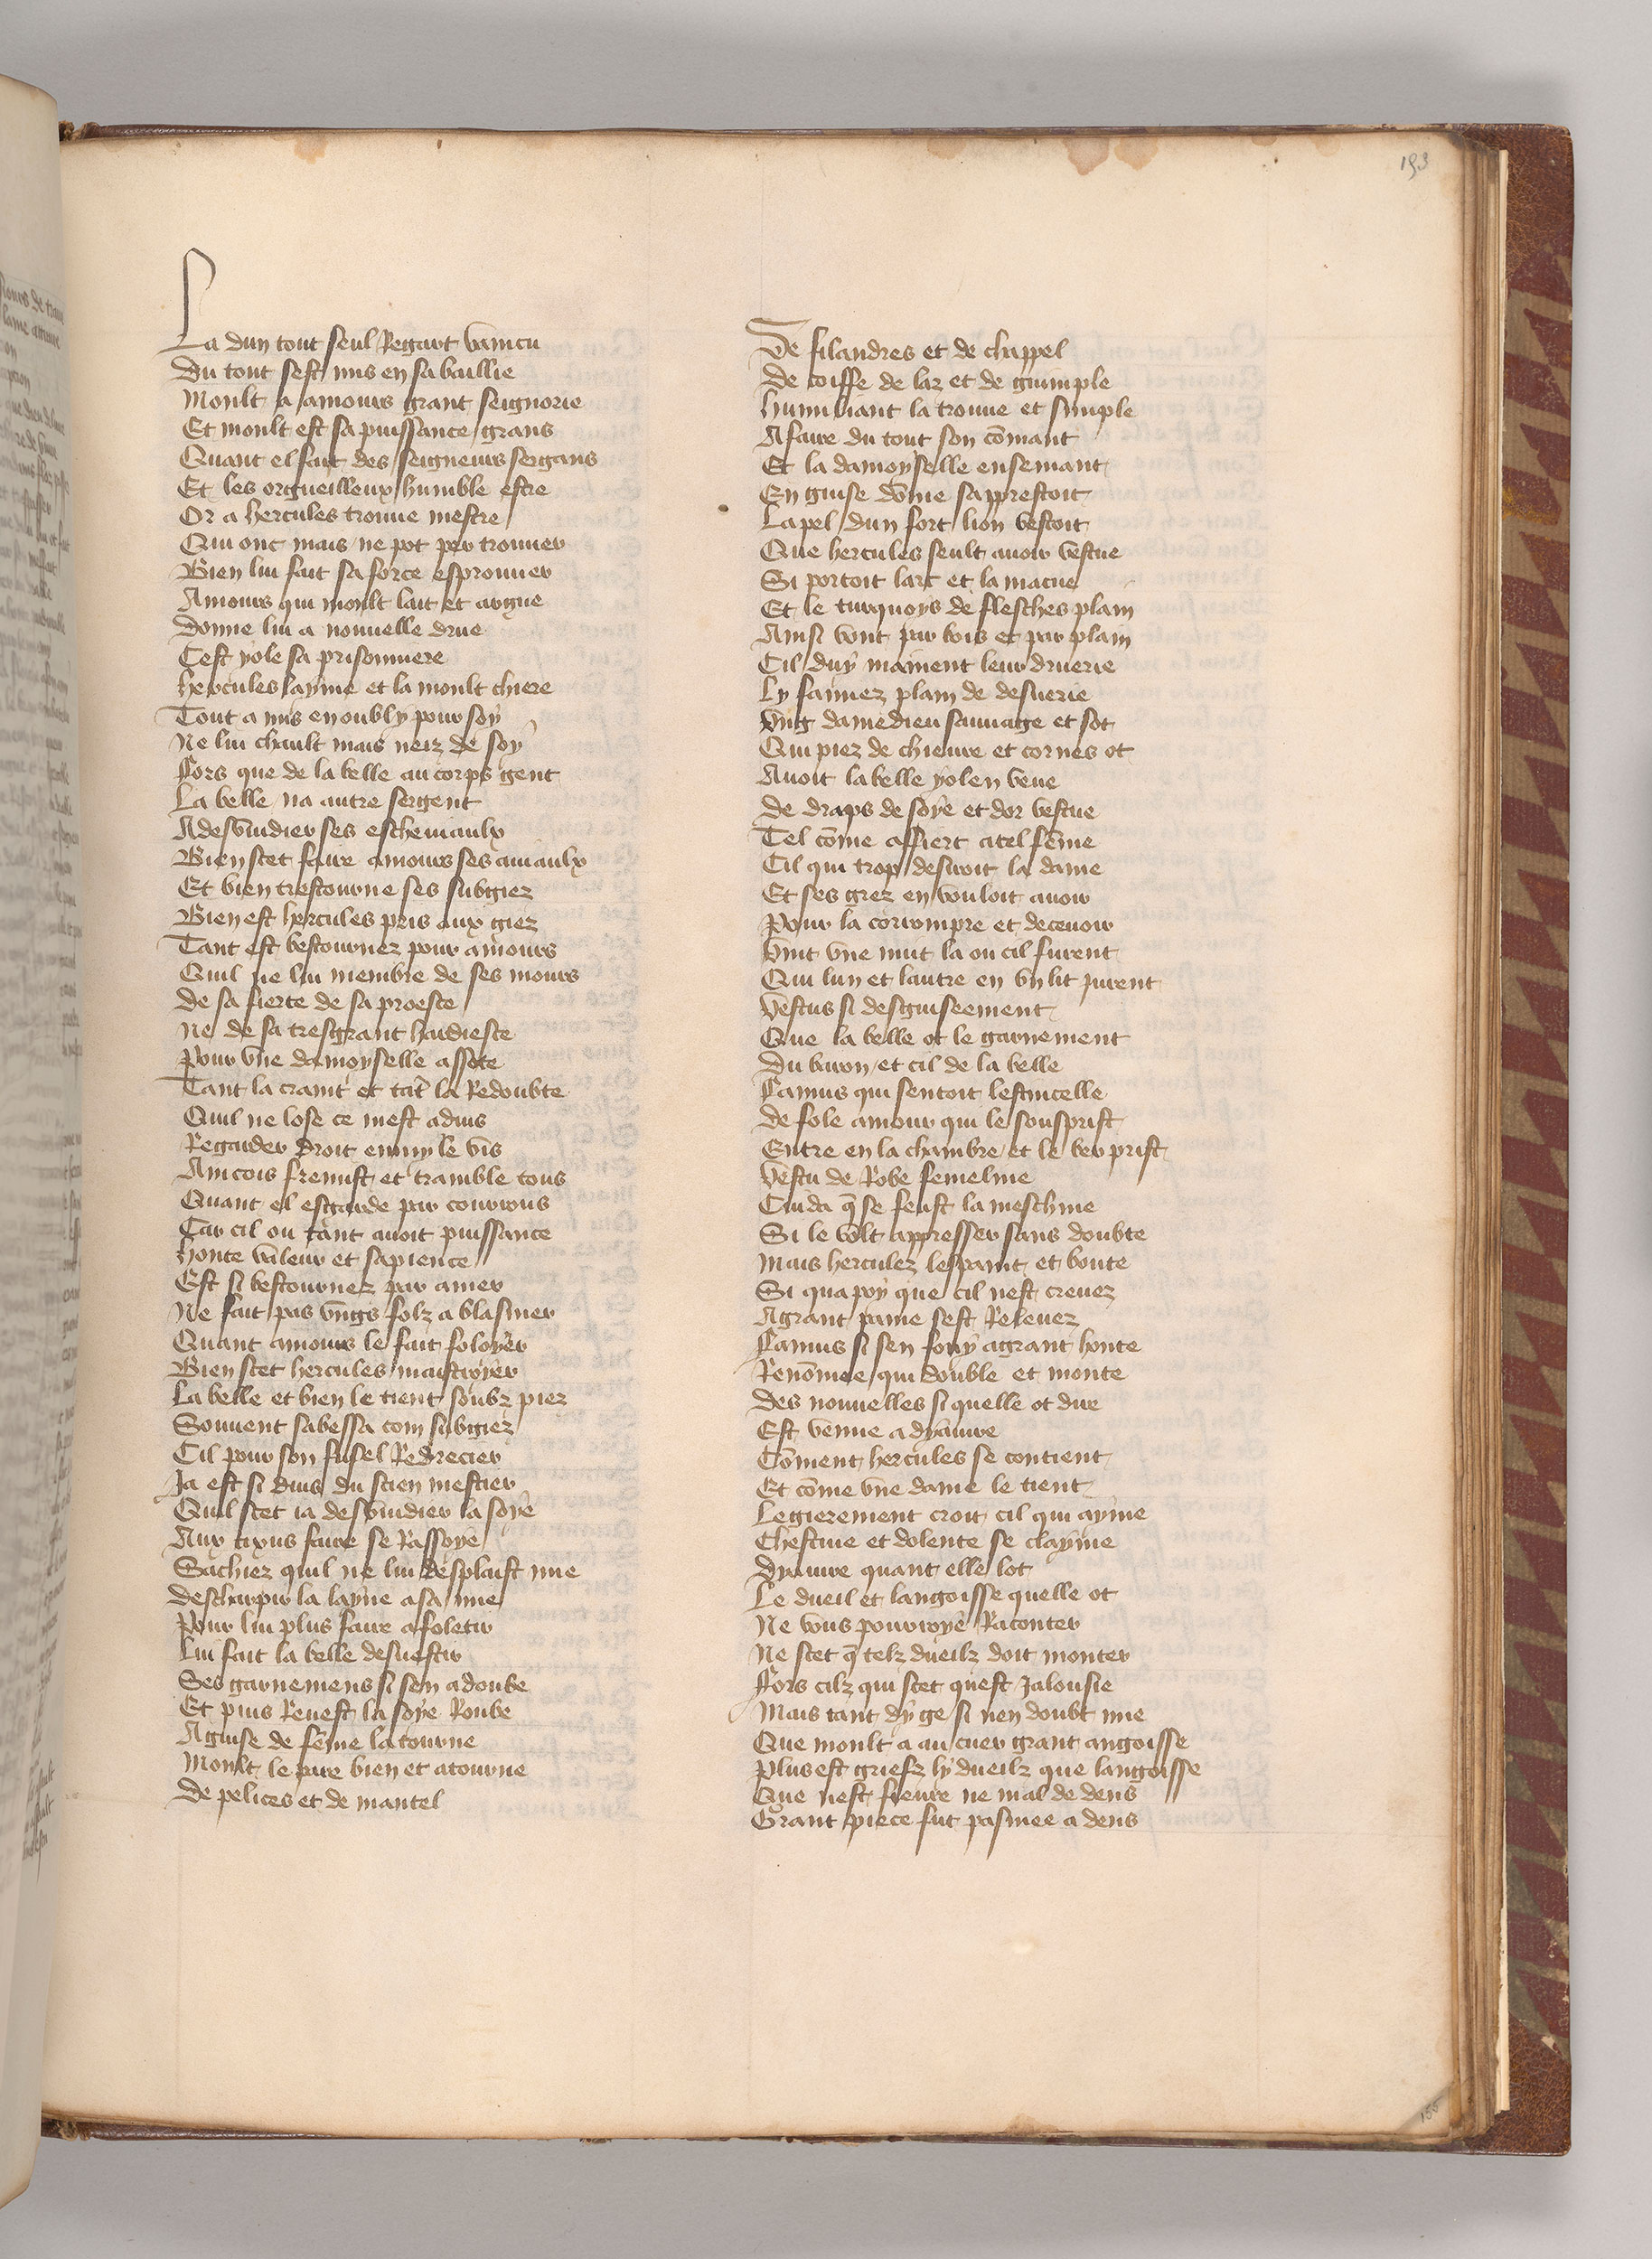 193
La dun tout seul Regart vaincu
Du tout sest mis en sa baillie
Moult a amours grant seignorie
Et moult est sa puissance grans
Quant el fait des seigneurs sergans
Et les orgueilleux humble estre
Or a hercules trouue mestre
Qui onc mais ne pot per trouuer
Bien lui fait sa force esprouuer
Amours qui moult lait et argue
Donne lui a nouuelle drue
Cest yole sa prisonniere
hercules layme et la moult chiere
Tout a mis en oubly pour soy
Ne lui chault mais neiz de soy
Fors que de la belle au corps gent
La belle na autre sergent
A desvuidier ses eschemaulx
Bien scet faire amours ses auiaulx
Et bien trestourne ses subgiez
Bien est hercules pris aux giez
Tant est bestournez pour amours
Quil ne lui membre de ses mours
De sa fierte de sa proesce
Ne de sa tresgrant hardiesce
Pour vne damoyselle assote
Tant la craint et tāt la Redoubte
Quil ne lose ce mest aduis
Regarder droit enmy le vis
Aincois fremist et tramble tous
Quant el esgarde par courrous
Car cil ou tant auoit puissance
honte valeur et sapience
Est si bestournez par amer
Ne fait pas vngs folz a blasmer
Quant amours le fait foloyer
Bien scet hercules maistroyer
La belle et bien le tient soubz piez
Souuent sabessa com subgiez
Cil pour son fusel Redrecier
Ja est si duis du scien mestier
Quil scet ia desvuidier la soye
Aux tixus faire se Rassoye
Sachiez quil ne lui desplaist mie
descharpir la layne a sa mie
Pour lui plus faire afoletir
Lui fait la belle desuestir
Ses garnemens si sen adoube
Et puis Reuest la soye Robe
A guise de fēme la tourne
Moult le pare bien et atourne
De pelices et de mantel
De filandres et de chappel
De coiffe de laz et de guimple
humiliant la trouue et simple
A faire du tout son cōmant
Et la damoyselle ensemant
En guise dōme sapprestoit
La pel dun fort lion vestoit
Que hercules seult auoir vestue
Si portoit larc et la macue
Et le turquoys de flesches plain
Ainsi vont par bois et par plain
Cil duy mainent leur druerie
Ly faunez plain de desuerie
vng damedieu sauuage et sot
Qui piez de chieure et cornes ot
Auoit la belle yolen veue
De draps de soye et dor vestue
Tel cōme affiert a tel fēme
Cil qui trop desiroit la dame
Et ses grez en vouloit auoir
Pour la corrompre et deceuoir
vint vne nuit la ou cil furent
Qui lun et lautre en vn lit jurent
vestus si desguiseement
Que la belle ot le garnement
Du baron et cil de la belle
Famus qui sentoit lestincelle
de fole amour qui le sousprist
Entre en la chambre et le ber prist
vestu de Robe femeline
Cuida q̄ se feust la meschine
Si le volt appresser sans doubte
Mais herculez lespaint et boute
Si qua poy que cil nest creuez
A grant paine sest Releuez
Famus si sen fouy a grant honte
Renōmee qui double et monte
Des nouuelles si quelle ot dire
Est venue a dyanire
Cōment hercules se contient
Et cōme vne dame le tient
Legierement croit cil qui ayme
Chestiue et dolente se clayme
Dyanire quant elle lot
Le dueil et langoisse quelle ot
Ne vous pourroye Raconter
Ne scet q̄ telz dueilz doit monter
Fors cilz qui scet quest Jalousie
Mais tant dy ge si nen doubt mie
Que moult a au cuer grant angoisse
Plus est griefz ly dueilz que langoisse
Que nest fieure ne mal de dens
Grant piece fut pasmee a dens
155